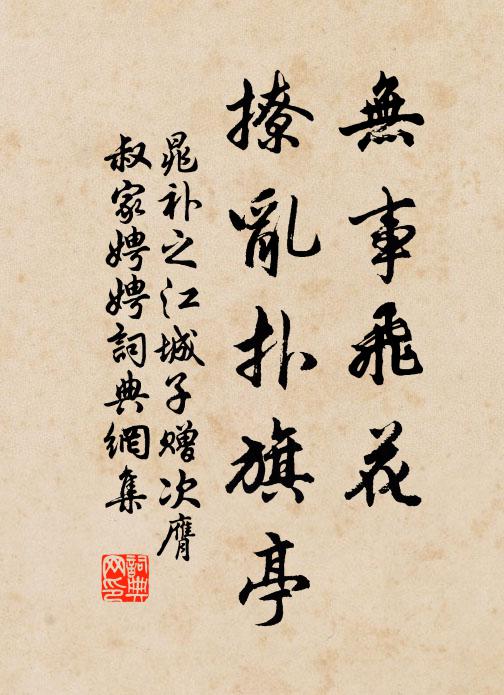 無事飛花
撩亂扑旗亭
晁补之江城子赠次膺
叔家娉娉詞典網集
詞典网印